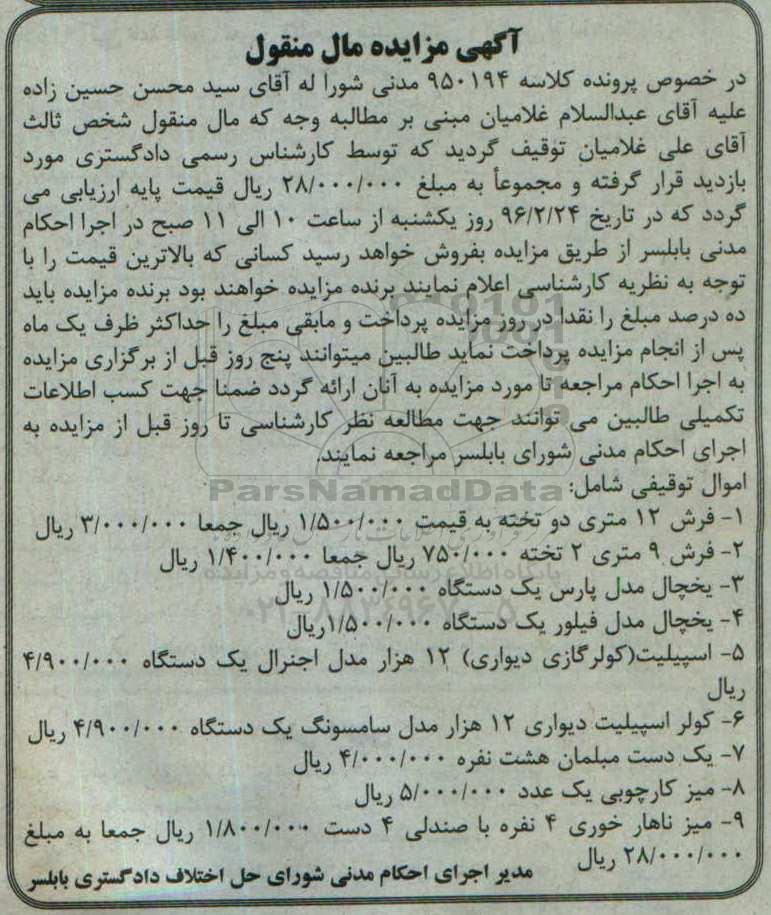 آگهی مزایده مال منقول
در خصوص پرونده کلاسه ۹۵۰۱۹۴ مدنی شورا له آقای سید محسن حسین زاده
علیه آقای عبدالسلام غلامیان مبنی بر مطالبه وجه که مال منقول شخص ثالث
آقای علی غلامیان توقیف گردید که توسط کارشناس رسمی دادگستری مورد
بازدید قرار گرفته و مجموعأ به مبلغ ۲۸/۰۰۰/۰۰۰ ریال قیمت پایه ارزیابی می
گردد که در تاریخ ۹۶/۲/۲۴ روز یکشنبه از ساعت ۱۰ الی ۱۱ صبح در اجرا احکام
مدنی بابلسر از طریق مزایده بفروش خواهد رسید کسانی که بالاترین قیمت را با
توجه به نظریه کارشناسی اعلام نمایند برنده مزایده خواهند بود برنده مزایده باید
ده درصد مبلغ را نقدا در روز مزایده پرداخت و مابقی مبلغ را حداکثر ظرف یک ماه
پس از انجام مزایده پرداخت نماید طالبین میتوانند پنج روز قبل از برگزاری مزایده
به اجرا احکام مراجعه تا مورد مزایده به آنان ارائه گردد ضمنا جهت کسب اطلاعات
تکمیلی طالبین می توانند جهت مطالعه نظر کارشناسی تا روز قبل از مزایده به
اجرای احکام مدنی شورای بابلسر مراجعه نمایند.
ParsNamadData
اموال توقیفی شامل:
۱- فرش ۱۲ متری دو تخته به قیمت ۱/۵۰۰/۰۰۰ ریال جمعا ۳/۰۰۰/۰۰۰ ریال
۲- فرش ۹ متری ۲ تخته ۷۵۰/۰۰۰ ریال جمعا ۱/۴۰۰/۰۰۰ ریال
پایگاه اطلاع رسانی مناقصه و مزایده
۳- یخچال مدل پارس یک دستگاه ۱/۵۰۰/۰۰۰ ریال
۰۲۱-۸۸۳۴۹۶۷۰-۵
۴- یخچال مدل فیلور یک دستگاه ۱/۵۰۰/۰۰۰ریال
۵- اسپیلیت(کولرگازی دیواری) ۱۲ هزار مدل اجنرال یک دستگاه ۴/۹۰۰/۰۰۰
ریال
۶- کولر اسپیلیت دیواری ۱۲ هزار مدل سامسونگ یک دستگاه ۴/۹۰۰/۰۰۰ ریال
۷- یک دست مبلمان هشت نفره ۴/۰۰۰/۰۰۰ ریال
۸- میز کارچوبی یک عدد ۵/۰۰۰/۰۰۰ ریال
۹- میز ناهار خوری ۴ نفره با صندلی ۴ دست ۱/۸۰۰/۰۰۰ ریال جمعا به مبلغ
۲۸/۰۰۰/۰۰۰ ریال
مدیر اجرای احکام مدنی شورای حل اختلاف دادگستری بابلسر